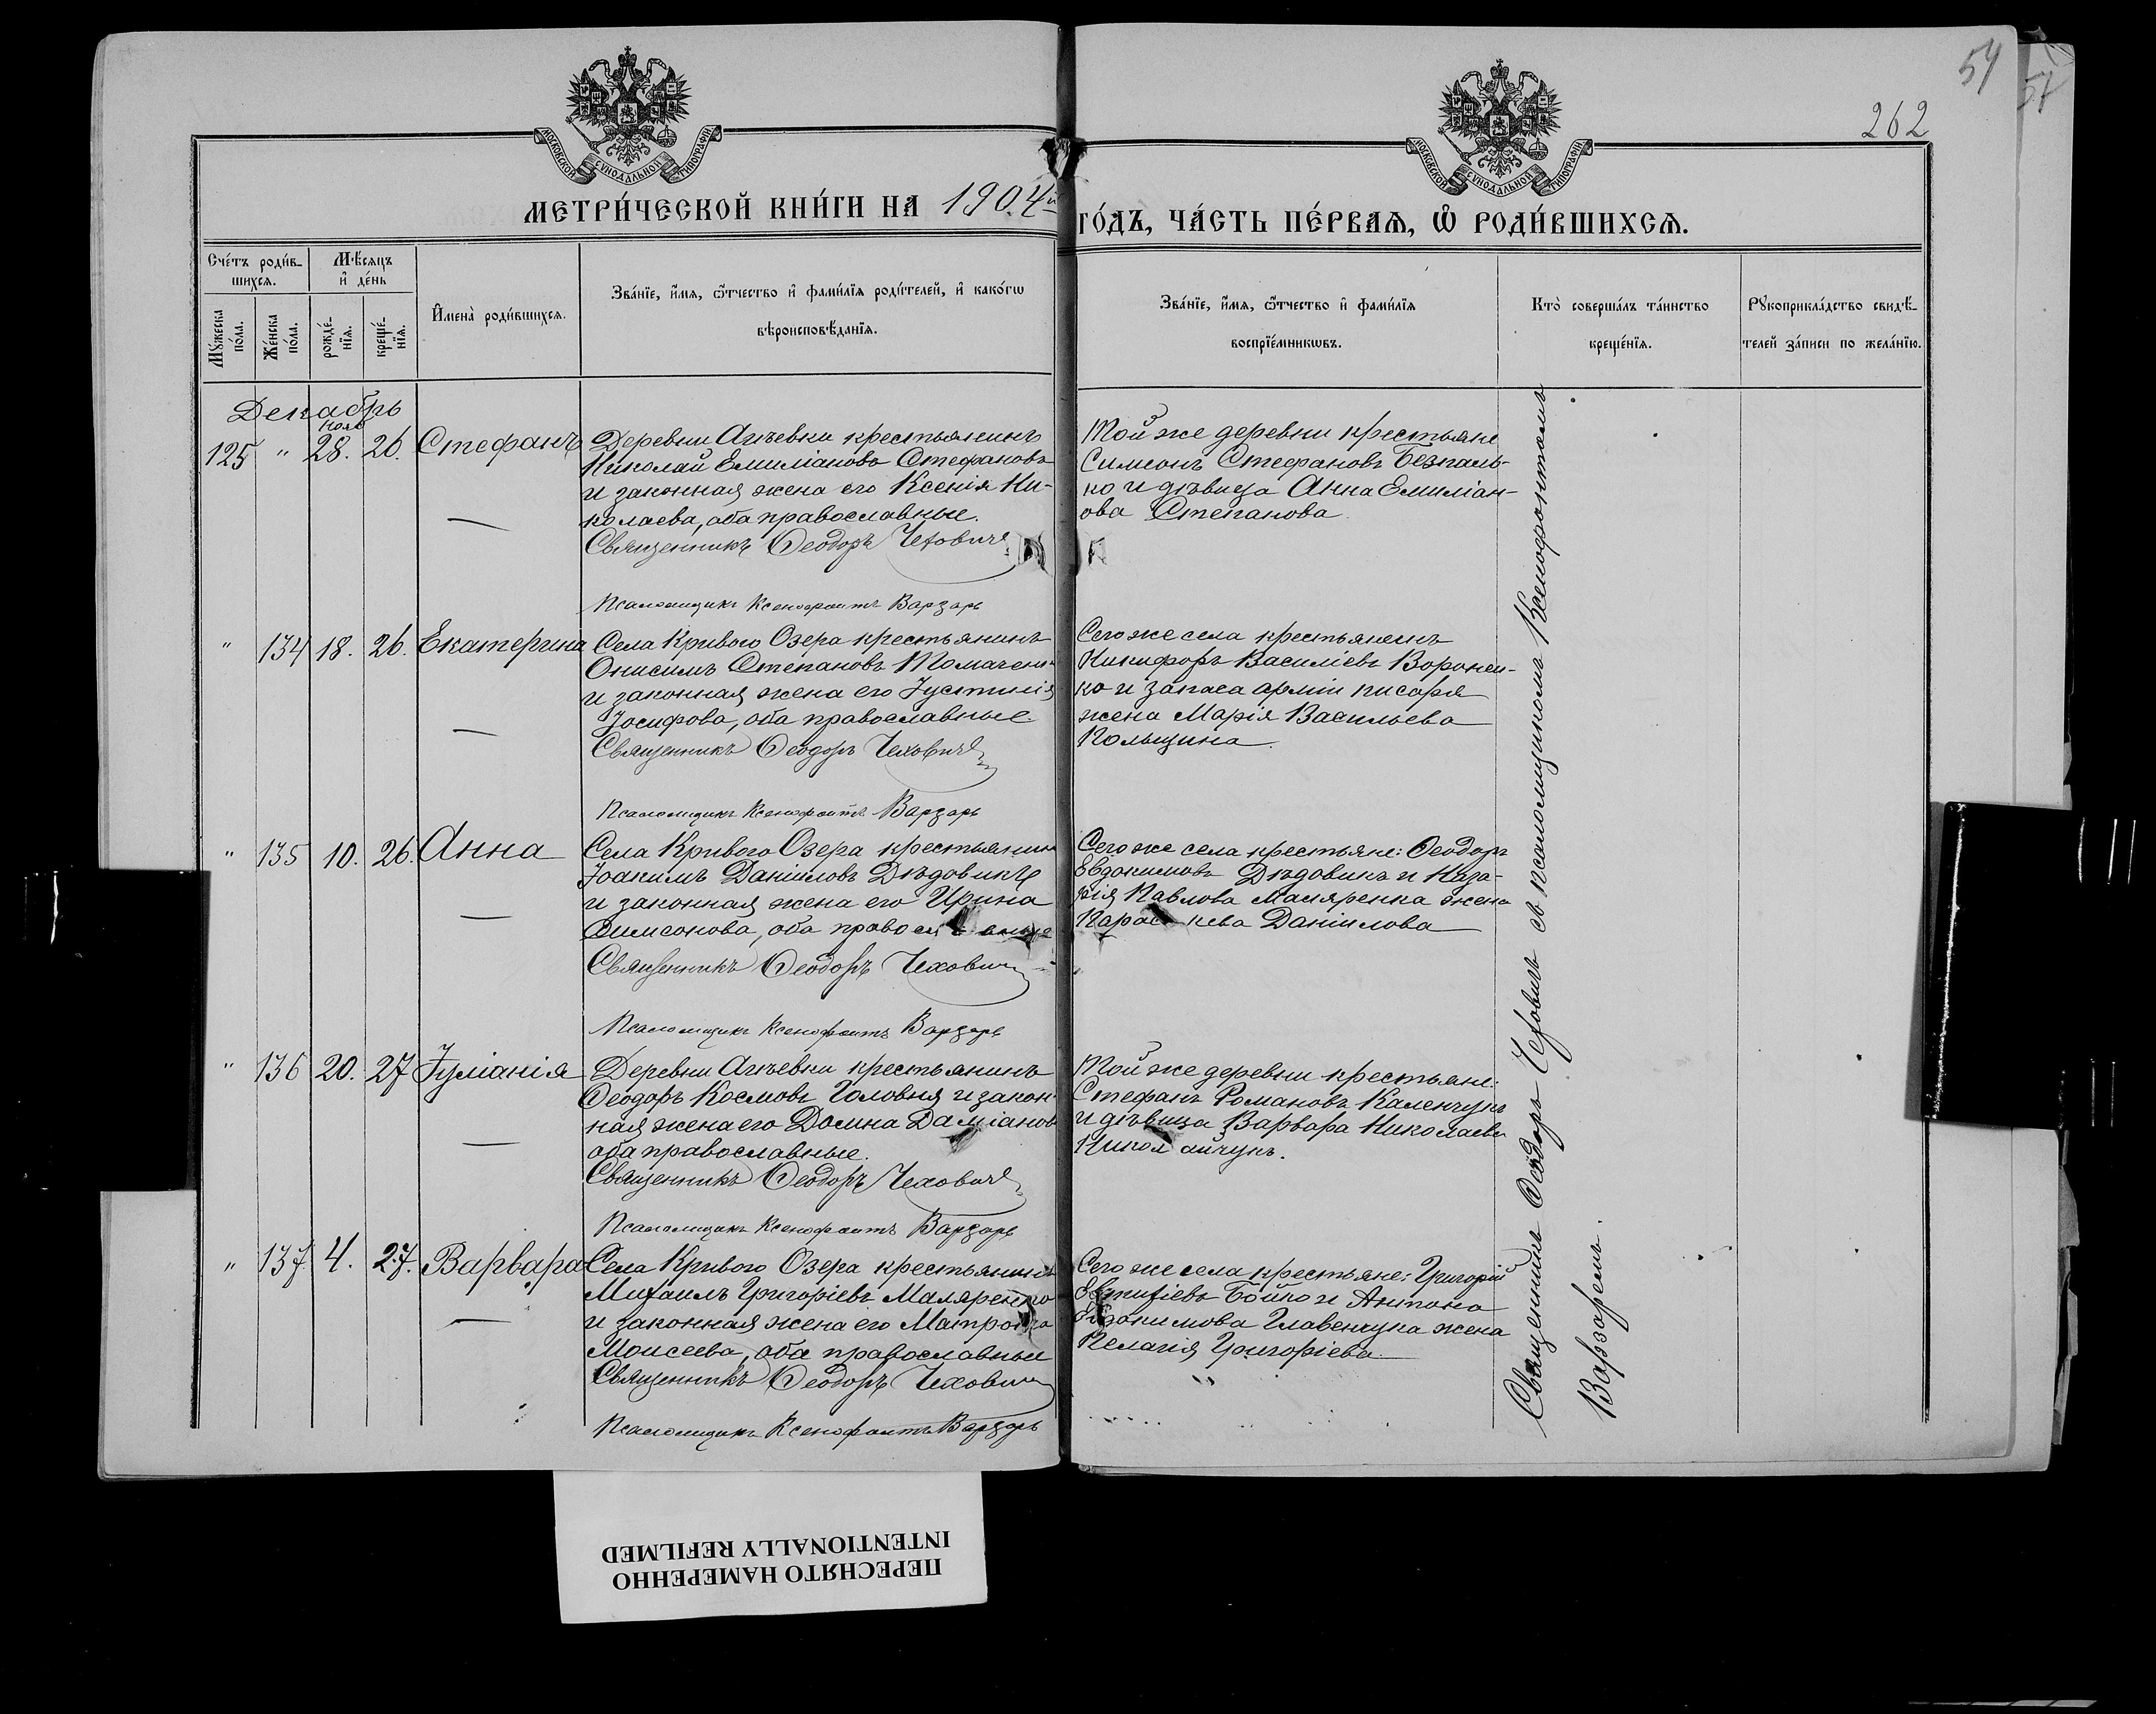 54
57
262
МОСКОВСКОЙ СУНОДАЛЬНОЙ ТИПОГРАФІИ
МОСКОВСКОЙ СУНОДАЛЬНОЙ ТИПОГРАФІИ
МЕТРИ́ЧЕСКОЙ КНИ́ГИ НА 1904й
ГО́ДЪ, ЧА́СТЬ ПЕ́РВАѦ, Ѡ҆ РОДИ́ВШИХСѦ.
Сче́тъ роди́в-
шихсѧ.
Мѣ́сѧцъ
и҆ де́нь
Мꙋ́жеска
по́ла.
Же́нска
по́ла.
рожде́-
нїѧ.
креще́-
нїѧ.
И҆мена̀ роди́вшихсѧ.
Зва́нїе, и҆́мѧ, ѻ҆́тчество и҆ фами́лїѧ роди́телей, и҆ како́гѡ
вѣроисповѣ́данїѧ.
Зва́нїе, и҆́мѧ, ѻ҆́тчество и҆ фами́лїѧ
воспрїе́мникѡвъ.
Кто̀ соверша́лъ та́инство
креще́нїѧ.
Рꙋкоприкла́дство свидѣ́-
телей за́писи по жела́нїю.
Декабрь
Нояб
125 " 28. 26. Стефанъ
Деревни Агѣевки крестьянинъ
Николай Емиліановъ Стефановъ
и законная жена его Ксенія Ни-
колаева, оба православные.
Священникъ Ѳеодоръ Чеховичъ
Псаломщикъ Ксенофонтъ Варзарь
Той же деревни крестьяне
Симеонъ Стефановъ Безпаль-
ко и дѣвица Анна Емиліан-
ова Степанова
" 134 18. 26. Екатерина
Села Кривого Озера крестьянинъ
Онисимъ Степановъ Томачен
и законная жена его Іустинія
Іосифова, оба православные.
Священникъ Ѳеодоръ Чеховичъ
Псаломщикъ Ксенофонтъ Варзарь
Сего же села крестьянинъ
Никифоръ Василіевъ Воронен-
ко и запаса арміи писаря
жена Марія Васильева
Кольцина.
" 135 10. 26. Анна
Села Кривого Озера крестьянинъ
Іоакимъ Даниловъ Дѣдовикъ
и законная жена его Ирина
Симеонова, оба православные
Священникъ Ѳеодоръ Чеховичъ
Псаломщикъ Ксенофонтъ Варзарь
Сего же села крестьяне: Ѳеодоръ
Евдокимовъ Дѣдовикъ и Наза-
рія Павлова Маляренка жена
Параскева Даніилова
" 136 20. 27 Іуліанія
Деревни Агѣевки крестьянинъ
Ѳеодоръ Космовъ Головня и закон
ная жена его Домна Даміанов
оба православные.
Священникъ Ѳеодоръ Чеховичъ
Псаломщикъ Ксенофонтъ Варзарь
Той же деревни крестьяне:
Стефанъ Романовъ Каленчукъ
и дѣвица Варвара Николаева
Николайчукъ.
" 137 4. 27. Варвара
Села Кривого Озера крестьянинъ
Михаилъ Григоріевъ Маляренко
и законная жена его Матрона
Моисеева, оба православные
Священникъ Ѳеодоръ Чеховичъ
Псаломщикъ Ксенофонтъ Варзарь
Сего же села крестьяне: Григорій
Евтихіевъ Бойко и Антона
Евдокимова Главенчука жена
Пелагія Григоріева.
Священникъ Ѳеодоръ Чеховичъ съ псаломщикомъ Ксенофонтомъ
Варзаремъ.
ПЕРЕСНЯТО НАМЕРЕННО
INTENTIONALLY REFILMED